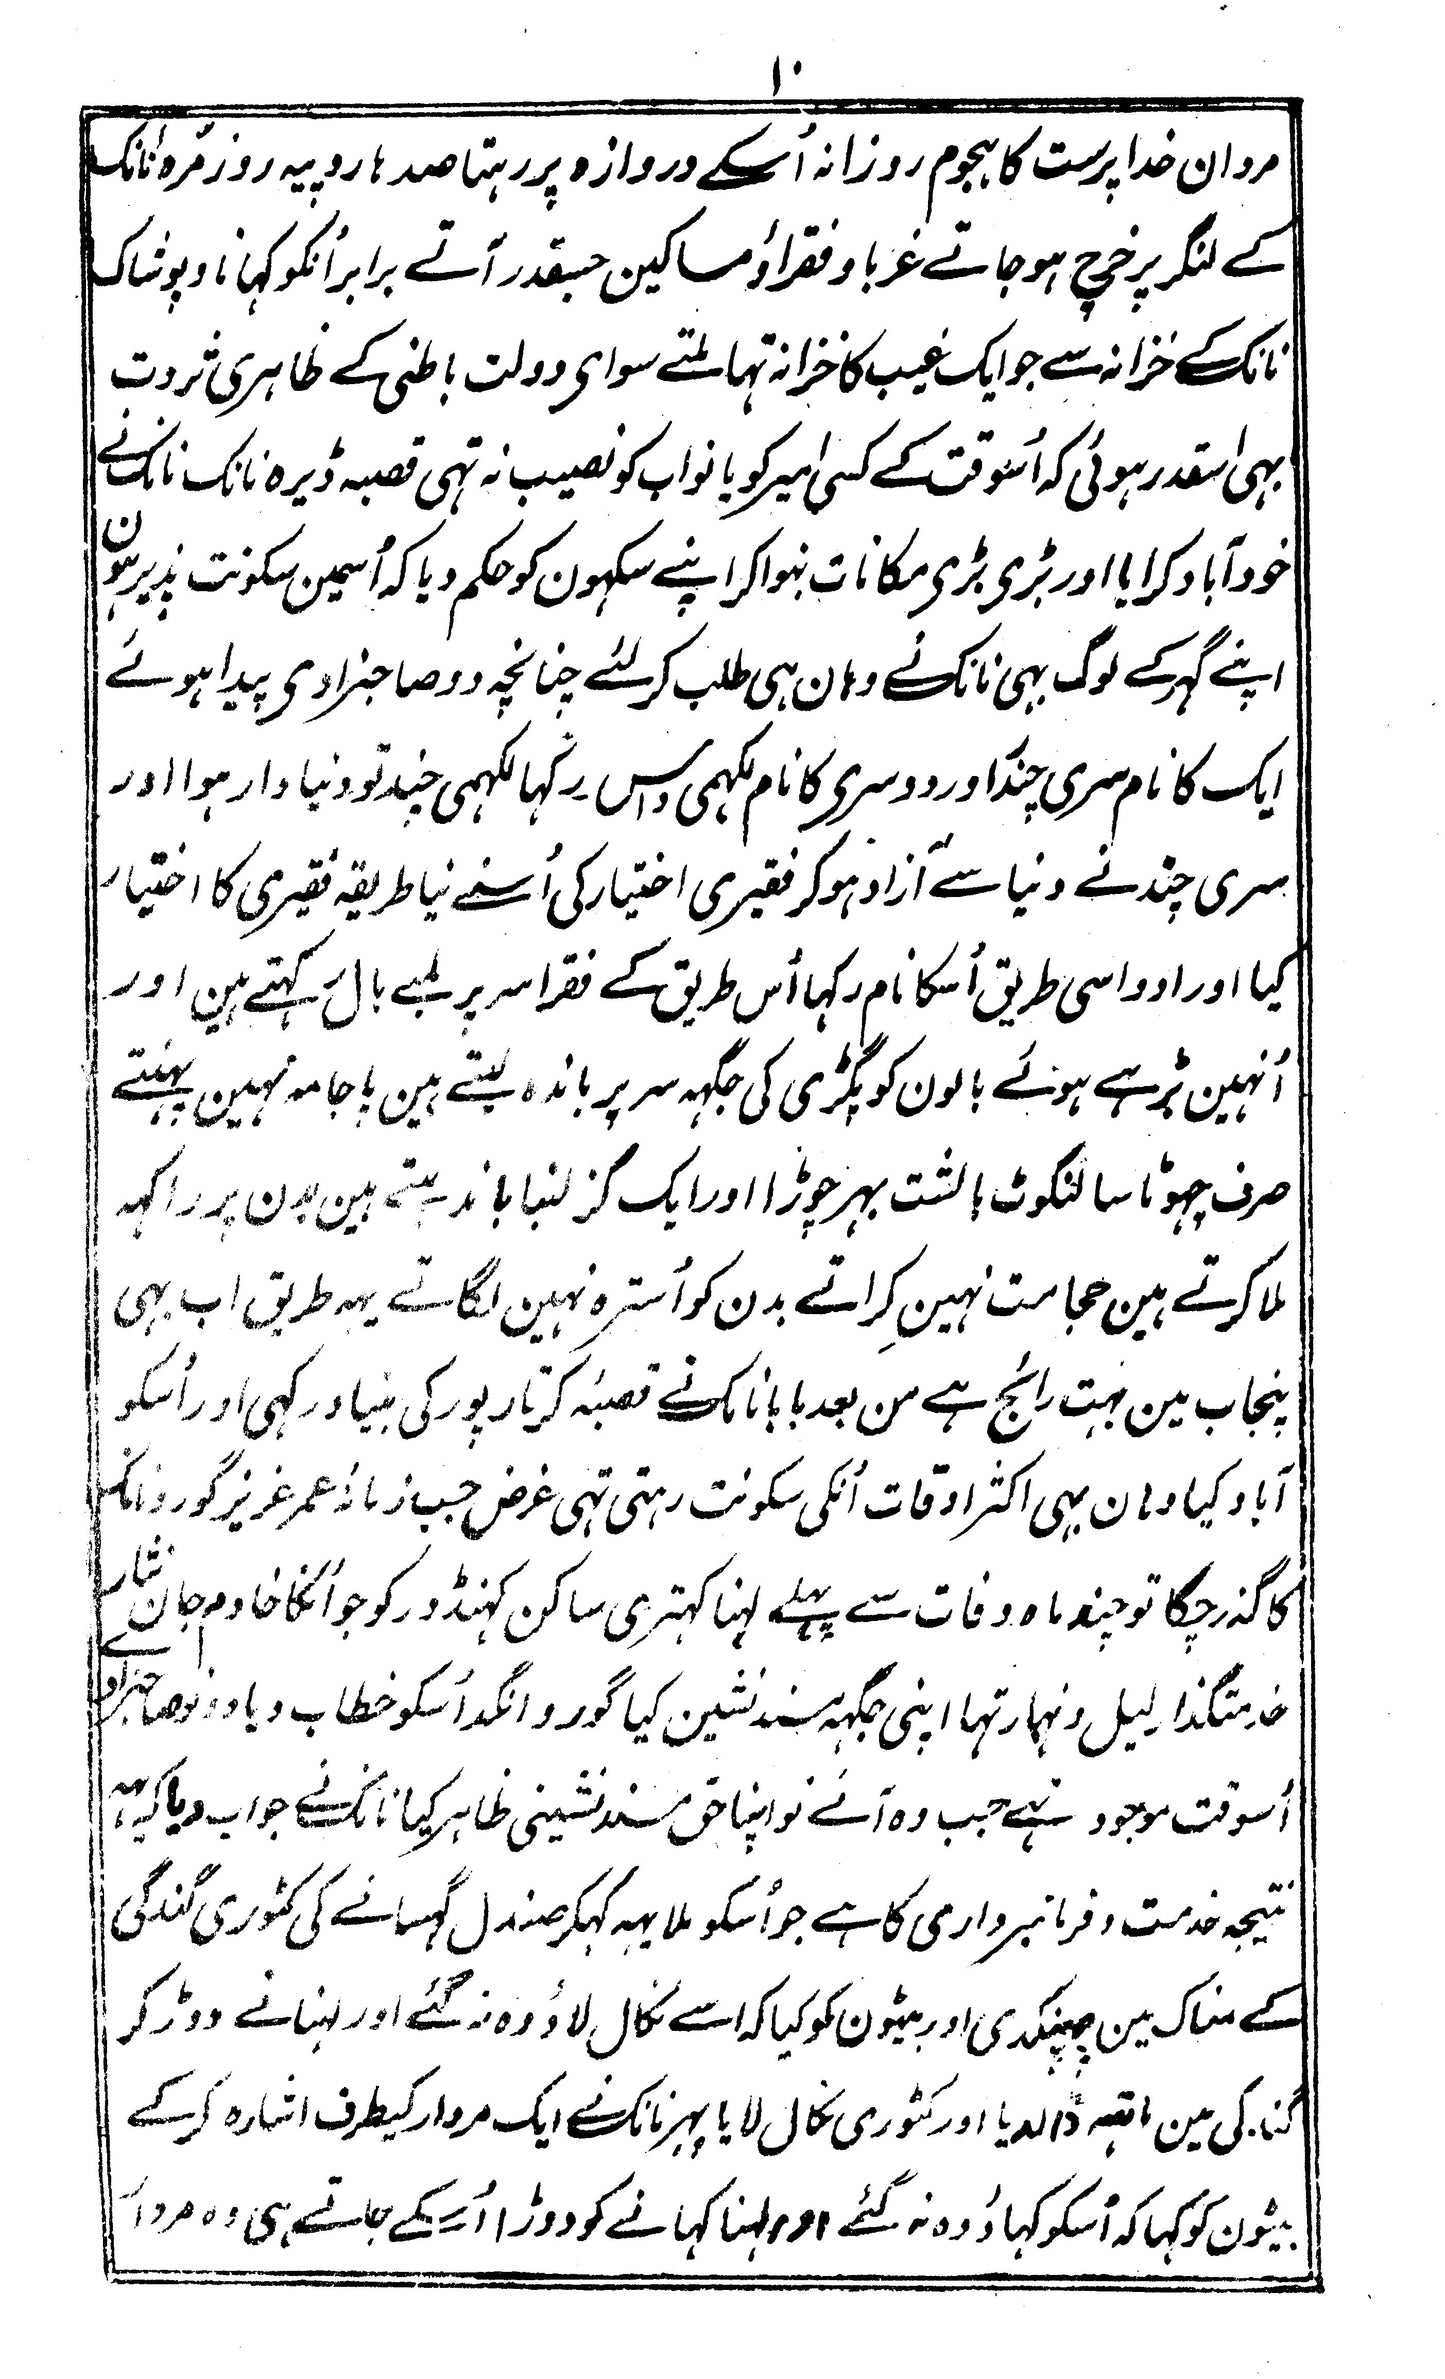 ۱۰
مردان خدا پرست کا ہجوم روزانہ اُسکے دروازہ پر رہتا صدہا روپیہ روز مُرہ نانک
کے لنگر پر خرچ ہو جاتے غربا و فقراؤ مساکین جسقدر آتے برابر اُنکو کہانا و پوشاک
نانک کے خزانہ سے جو ایک غیب کا خزانہ تہا ملتے سوای دولت باطنی کے ظاہری ثروت
بہی اسقدر ہوئی کہ اُسوقت کے کسی امیر کو یا نواب کو نصیب نہ تہی قصبہ ڈیرہ نانک نانک نے
خود آباد کرایا اور بڑی بڑی مکانات بنوا کر اپنے سکہون کو حکم دیا کہ اُسمین سکونت پذیر ہون
اپنے گہر کے لوگ بہی نانک نے وہان ہی طلب کر لئے چنانچہ دو صاحبزادی پیدا ہوئے
ایک کا نام سری چند اور دوسری کا نام لکہمی داس رکہا لکہمی چند تو دنیا دار ہوا اور
سری چند نے دنیا سے آزاد ہو کر فقیری اختیار کی اُسنے نیا طریقہ فقیری کا اختیار
کیا اور اوداسی طریق اُسکا نام رکہا اُس طریق کے فقرا سر پر لمبے بال رکہتے ہین اور
اُنہین بڑہے ہوئے بالون کو پگڑی کی جگہہ سر پر باندہ لیتے ہین پاجامہ نہین پہنتے
صرف چہوٹا سا لنگوٹ بالشت بہر چوڑا اور ایک گز لنبا باندہتے ہین بدن پر راکہہ
ملا کرتے ہین حجامت نہین کراتے بدن کو اُسترہ نہین لگاتے یہہ طریق اب بہی
پنجاب مین بہت رائج ہے من بعد بابا نانک نے قصبہ کرتارپور کی بنیاد رکہی اور اُسکو
آباد کیا وہان بہی اکثر اوقات اُنکی سکونت رہتی تہی غرض جب زمانہ عمر عزیز گورو نانک
کا گذر چکا تو چند ماہ وفات سے پہلے لہنا کہتری ساکن کہنڈور کو جو اُنکا خادم جان نثار
خدمتگذار لیل و نہار تہا اپنی جگہہ مسند نشین کیا گورو انگد اُسکو خطاب دیا دونو صاحبزادے
اُسوقت موجود نہے جب وہ آئے تو اپنا حق مسند نشینی ظاہر کیا نانک نے جواب دیا کہ یہہ
نتیجہ خدمت و فرمانبرداری کا ہے جو اُسکو ملا یہہ کہکر صندل گہسانے کی کٹوری گندگی
کے مغاک مین پہینکدی اور بیٹون کو کہا کہ اسے نکال لاؤ وہ نہ گئے اور لہنا نے دوڑ کر
گندگی مین ہاتہہ ڈالدیا اور کٹوری نکال لایا پہر نانک نے ایک مردار کیطرف اشارہ کر کے
بیٹون کو کہا کہ اُسکو کہاؤ وہ نہ گئے اور لہنا کہانے کو دوڑا اُسکے جاتے ہی وہ مردار